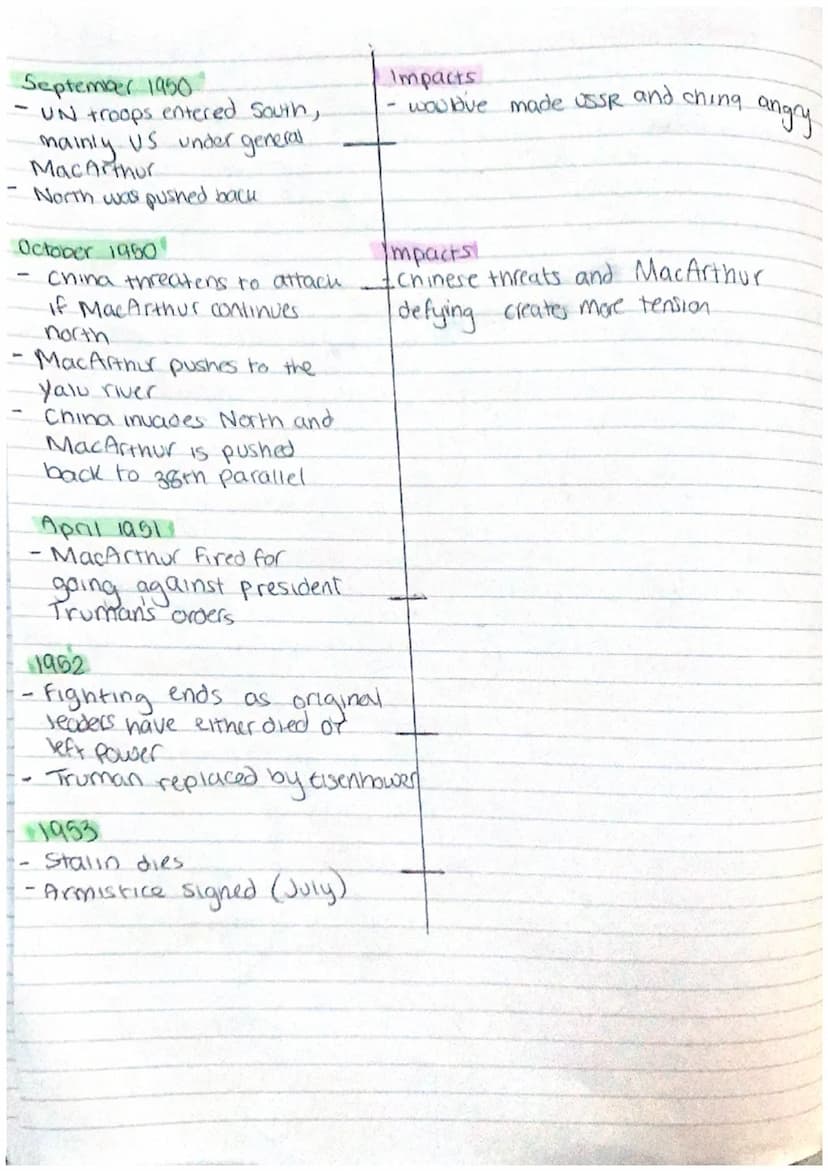 September 1950
- UN troops entered South,
mainly US under general
MacArthur
- North was pushed back
Impacts
- would've made USSR and china angry
October 1950
- China threatens to attack
if MacArthur continues
north
- MacArthur pushes to the
Yalu river
- China invades North and
MacArthur is pushed
back to 38th parallel
Impacts
- Chinese threats and MacArthur
defying creates more tension
April 1951
- MacArthur fired for
going against president
Truman's orders
1952
- Fighting ends as original
leaders have either died or
left power
- Truman replaced by Eisenhower
1953
- Stalin dies
- Armistice signed (July)